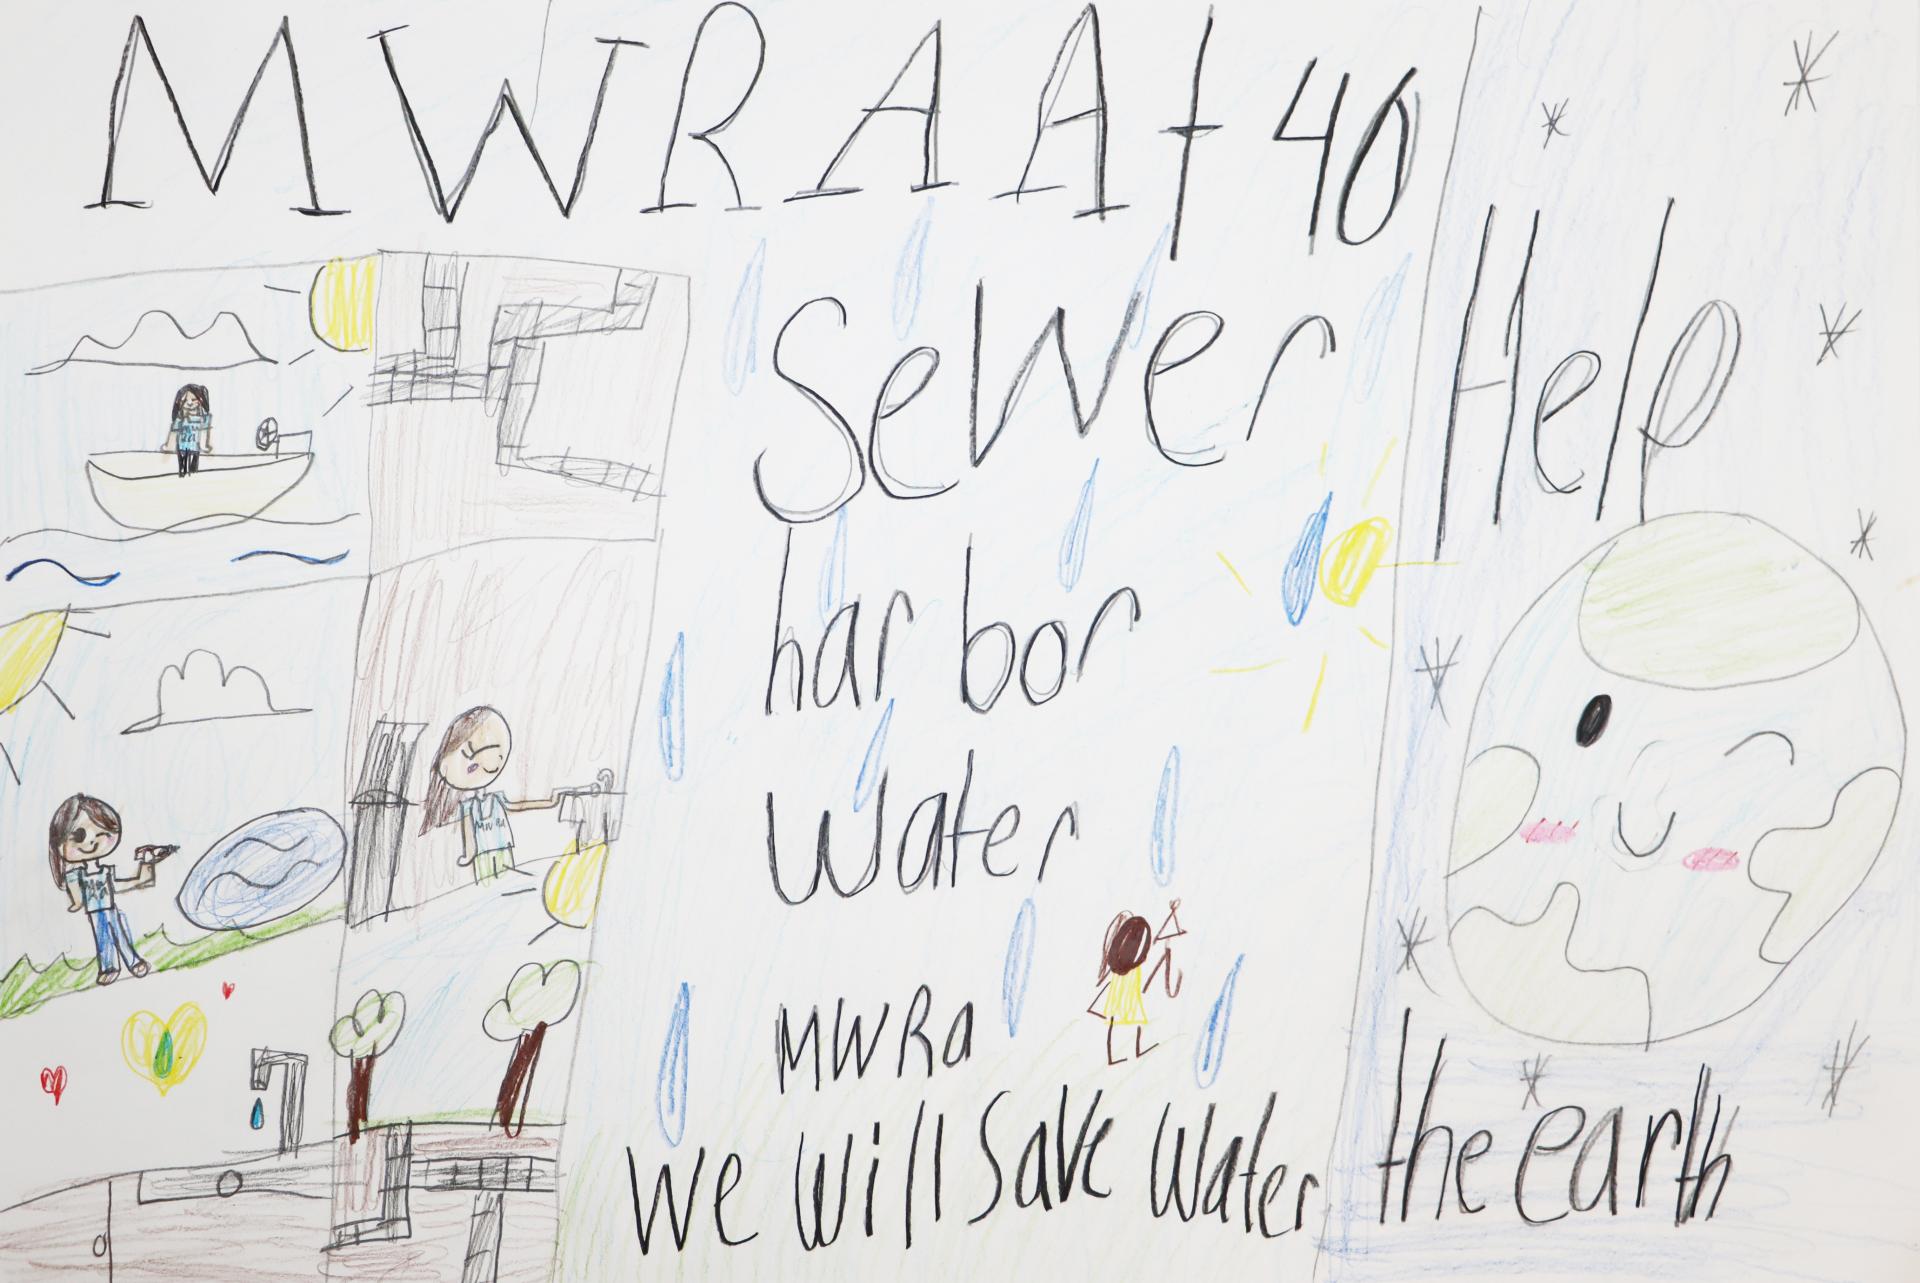 MWRA At 40
Sewer
harbor
Water
MWRa
We Will Save Water
Help
the earth
MWRA